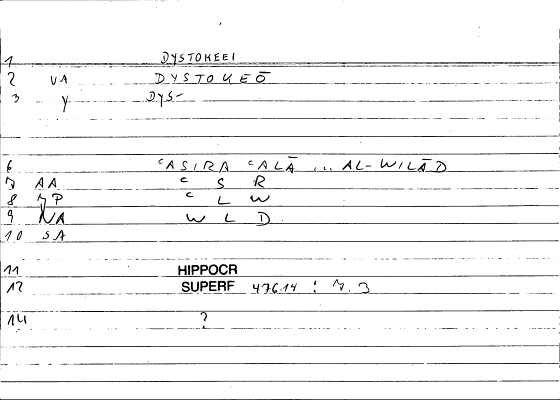 1 DYSTOKEEI
2 VA DYSTOKEŌ
3 y DYS-
6 ʿASIRA ʿALĀ ... AL-WILĀD
7 AA ʿ S R
8 ʿ L W
9 NA W L D
10 SA
11 HIPPOCR
12 SUPERF 476 14 :
14 ?